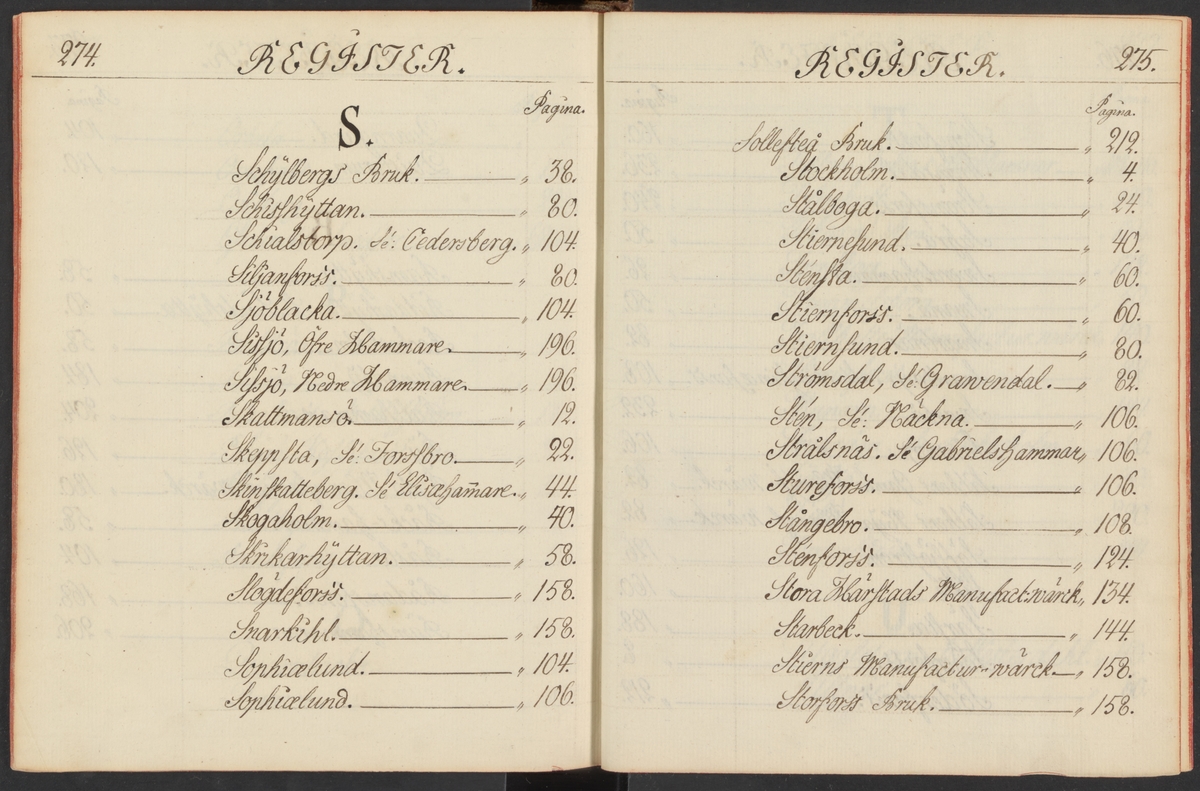 274.
REGISTER.
Pagina.
S.
Schÿlbergs Bruk. „ 38.
Schisshÿttan. „ 80.
Schialstorp. Sé: Cedersberg. „ 104.
Siljanforss. „ 80.
Sjöblacka. „ 104.
Sissjö, Öfre Hammare. „ 196.
Silsjö, Nedre Hammare. „ 196.
Skattmansö. „ 12.
Skeppsta, Sé: Forssbro. „ 22.
Skinskatteberg. Sé Elisæham̄are. „ 44.
Skogaholm. „ 40.
Skrikarhÿttan. „ 58.
Slögdeforss. „ 158.
Snarkihl. „ 158.
Sophiælund. „ 104.
Sophiælund. „ 106.
275.
REGISTER.
Pagina.
Sollefteå Bruk. „ 212.
Stockholm. „ 4.
Stålboga. „ 24.
Stiernesund. „ 40.
Sténsta. „ 60.
Stiernforss. „ 60.
Stiernsund. „ 80.
Strömsdal, Sé: Grawendal. „ 82.
Stén, Sé: Näckna. „ 106.
Strålsnäs. Sé Gabrielshammar „ 106.
Stureforss. „ 106.
Stångebro. „ 108.
Sténforss. „ 124.
Stora Härstads Manufact:wärck „ 134.
Starbeck. „ 144.
Stierns Manufactur-wärck. „ 158.
Storforss Bruk. „ 158.